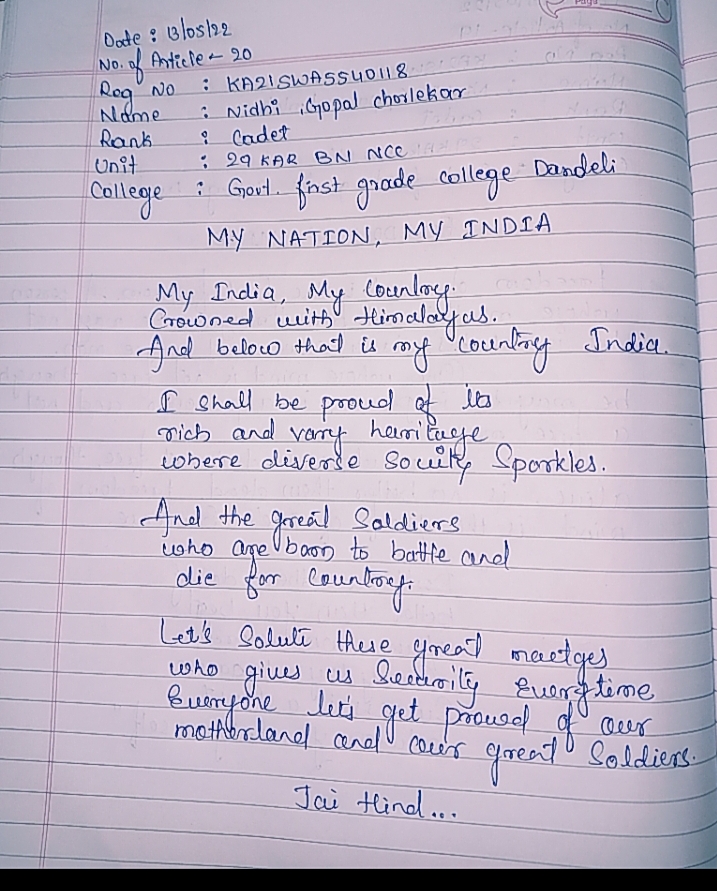 Date : 13/05/22
No. of Article - 20
Reg No : KA21SWA5540118
Name : Nidhi .Gopal chorlekar
Rank : Cadet
Unit : 29 KAR BN NCC
College : Govt. first grade college Dandeli
MY NATION, MY INDIA
My India, My Country.
Crowned with Himalayas.
And below that is my country India.
I shall be proud of its
rich and varry heritage
where diverse Society Sparkles.
And the great Soldiers
who are born to battle and
die for Country.
Let's Salute these great
who gives us Security Everytime
Everyone let's get proud of our
motherland and our great Soldiers.
Jai Hind...